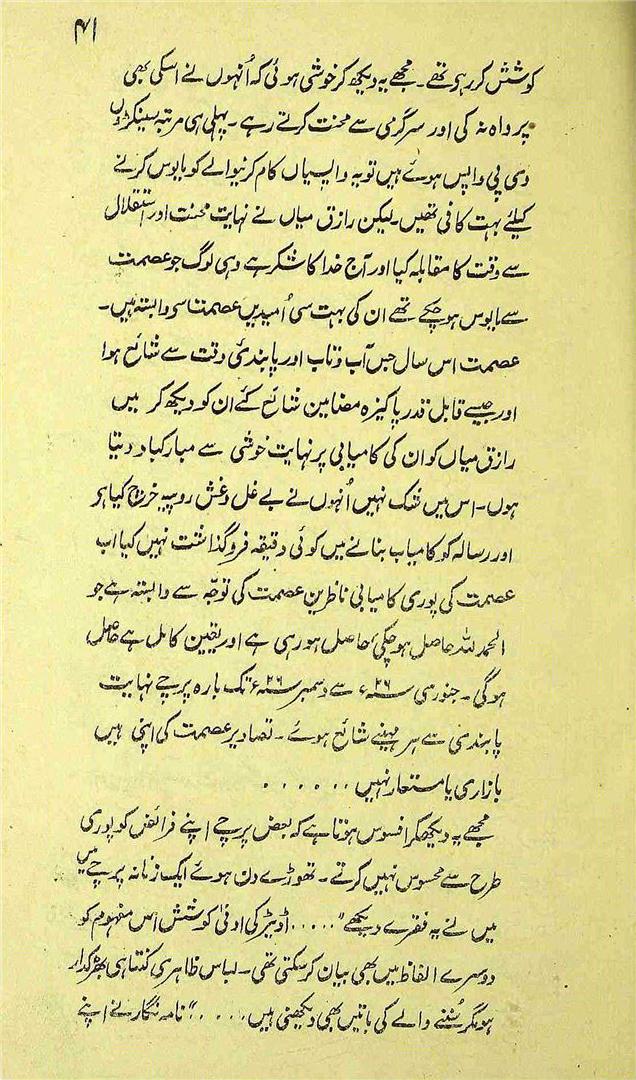 ۴۱
کوشش کر رہی تھے۔ مجھے یہ دیکھ کر خوشی ہوئی کہ اُنہوں نے اسکی بھی
پرواہ نہ کی اور سرگرمی سے محنت کرتے رہے۔ پہلی ہی مرتبہ سینکڑوں
وی پی واپس ہوئے ہیں تو یہ واپسیاں کام کرنیوالے کو مایوس کرنے
کیلئے بہت کافی تھیں۔ لیکن رازق میاں نے نہایت محنت اور استقلال
سے وقت کا مقابلہ کیا اور آج خدا کا شکر ہے وہی لوگ جو عصمت
سے مایوس ہو چکے تھے ان کی بہت سی اُمیدیں عصمت سی وابستہ ہیں۔
عصمت اس سال جس آب و تاب اور پابندئی وقت سے شائع ہوا
اور جیسے قابل قدر پاکیزہ مضامین شائع کئے ان کو دیکھ کر میں
رازق میاں کو ان کی کامیابی پر نہایت خوشی سے مبارکباد دیتا
ہوں۔ اس میں شک نہیں اُنہوں نے بے غل و غش روپیہ خرچ کیا ہو
اور رسالہ کو کامیاب بنانے میں کوئی دقیقہ فروگذاشت نہیں کیا اب
عصمت کی پوری کامیابی ناظرین عصمت کی توجّہ سے وابستہ ہے جو
الحمد للہ حاصل ہو چکی، حاصل ہو رہی ہے اور یقین کامل ہے حاصل
ہوگی۔ جنوری سنہ ۲۶ء سے دسمبر سنہ ۲۶ء تک بارہ پرچے نہایت
پابندی سے ہر مہینے شائع ہوئے۔ تصاویر عصمت کی اپنی ہیں
بازاری یا مستعار نہیں ......
مجھے یہ دیکھکر افسوس ہوتا ہے کہ بعض پرچے اپنے فرائض کو پوری
طرح سے محسوس نہیں کرتے۔ تھوڑے دن ہوئے ایک زنانہ پرچے میں
میں نے یہ فقرے دیکھے "..... اڈیٹر کی ادنیٰ کوشش اس مفہوم کو
دوسرے الفاظ میں بھی بیان کر سکتی تھی۔ لباس ظاہری کتنا ہی بھڑکدار
ہو مگر سُننے والے کی باتیں بھی دیکھنی ہیں ....." نامہ نگار نے اپنے